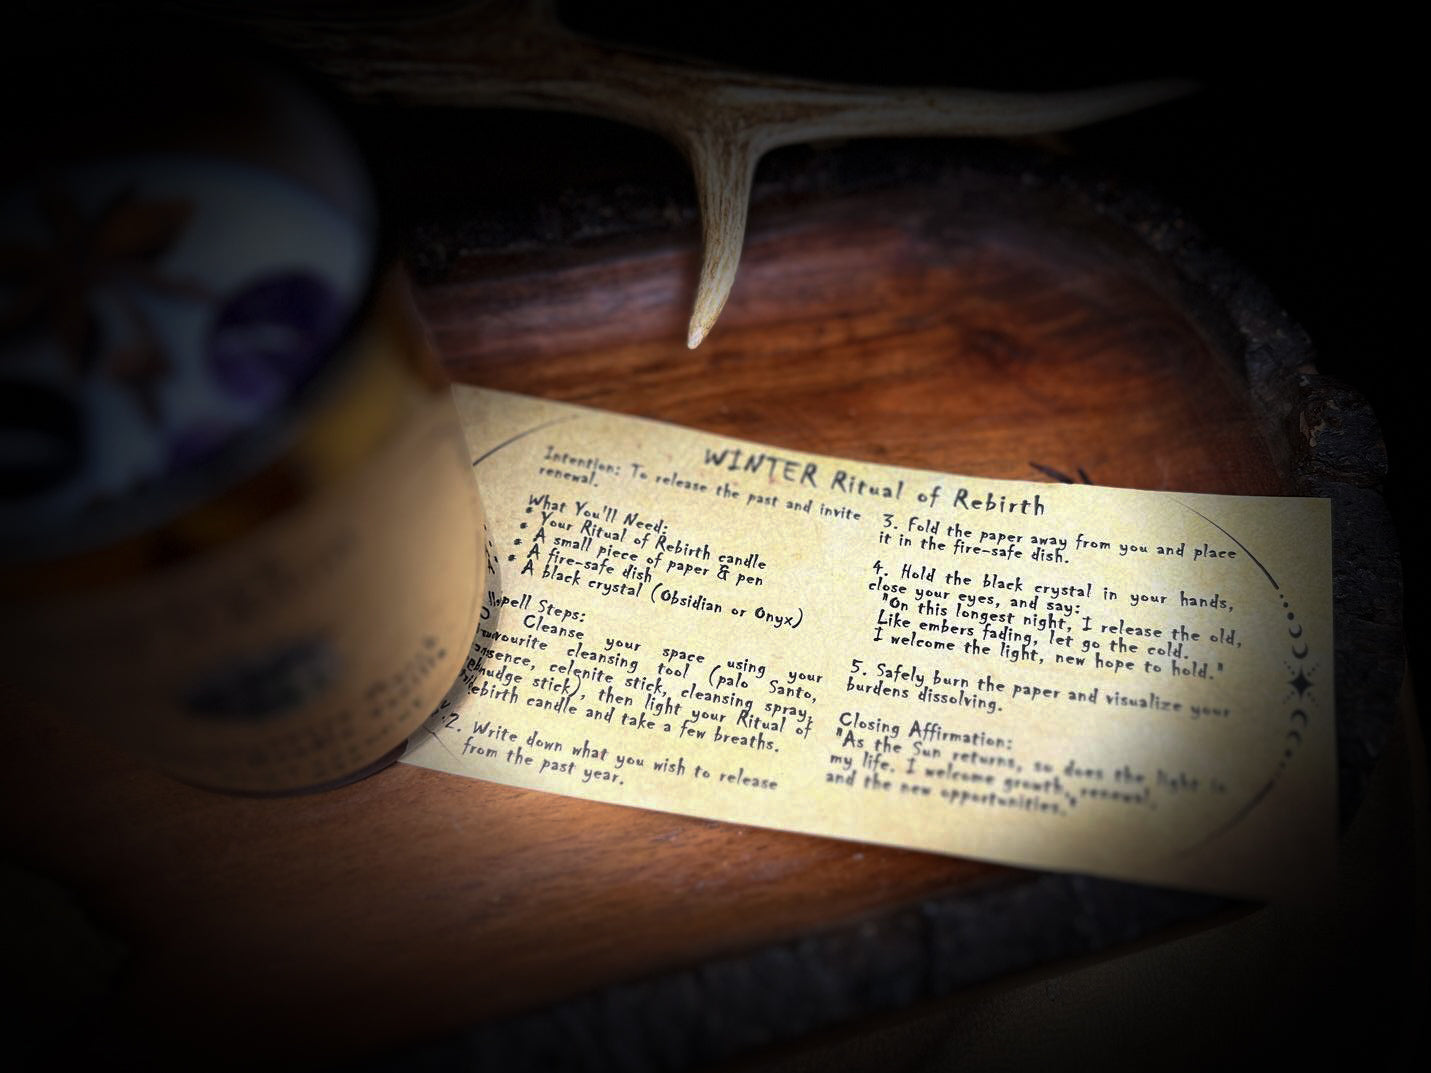 WINTER Ritual of Rebirth
Intention: To release the past and invite
renewal.
What You'll Need:
• Your Ritual of Rebirth candle
• A small piece of paper & pen
• A fire-safe dish
• A black crystal (Obsidian or Onyx)
Spell Steps:
Cleanse your space using your
favourite cleansing tool (palo Santo,
celenite stick, cleansing spray,
smudge stick), then light your Ritual of
Rebirth candle and take a few breaths.
2. Write down what you wish to release
from the past year.
3. Fold the paper away from you and place
it in the fire-safe dish.
4. Hold the black crystal in your hands,
close your eyes, and say:
"On this longest night, I release the old,
Like embers fading, let go the cold.
I welcome the light, new hope to hold."
5. Safely burn the paper and visualize your
burdens dissolving.
Closing Affirmation:
"As the Sun returns, so does the light in
my life. I welcome growth, renewal,
and the new opportunities."